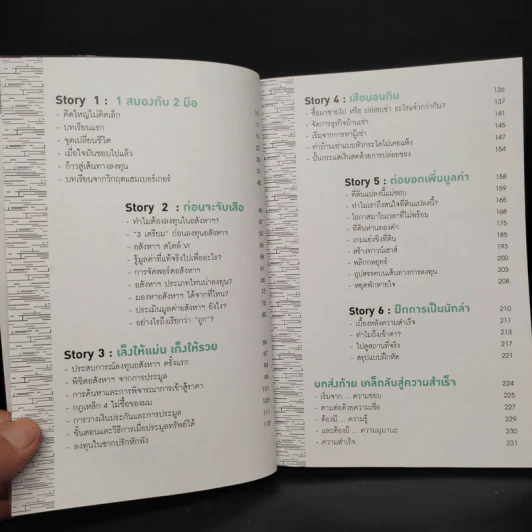 Story 1 : 1 สมองกับ 2 มือ
- คิดใหญ่ไม่คิดเล็ก
- บทเรียนแรก
- จุดเปลี่ยนชีวิต
- เมื่อใจมันชอบไปแล้ว
- ก้าวสู่เส้นทางลงทุน
- บทเรียนจากวิกฤตแฮมเบอร์เกอร์
Story 2 : ก่อนจะจับเสือ
- ทำไมต้องลงทุนในอสังหาฯ?
- "3 เตรียม" ก่อนลงทุนอสังหาฯ
- อสังหาฯ สไตล์ VI
- รู้มูลค่าที่แท้จริงไปเพื่ออะไร?
- การจัดพอร์ตอสังหาฯ
- อสังหาฯ ประเภทไหนน่าลงทุน?
- มองหาอสังหาฯ ได้จากที่ไหน?
- ประเมินมูลค่าอสังหาฯ ยังไง?
- อย่างไรถึงเรียกว่า "ถูก"?
Story 3 : เล็งให้แม่น เก็งให้รวย
- ประสบการณ์ลงทุนอสังหาฯ ครั้งแรก
- พิชิตอสังหาฯ จากการประมูล
- การค้นหาและการพิจารณาการเข้าสู้ราคา
- กฎเหล็ก 4 ไม่ซื้อของผม
- การวางเงินประกันและการประมูล
- ขั้นตอนและวิธีการเมื่อประมูลทรัพย์ได้
- ลงทุนในซากปรักหักพัง
Story 4 : เสือนอนกิน 136
- ซื้อมาขายไป หรือ ปล่อยเช่า อะไรแจ๋วกว่ากัน? 137
- จัดการธุรกิจบ้านเช่า 141
- เริ่มจากการหาผู้เช่า 145
- ทำบ้านเช่าแบบหัวกระไดไม่เคยแห้ง 147
- เป็นกระแสเงินสดด้วยการปล่อยของ 154
Story 5 : ต่อยอดเพิ่มมูลค่า 158
- ที่ดินแปลงนี้แม่ชอบ 159
- ทำไมเราถึงสนใจที่ดินแปลงนี้? 160
- โอกาสมาในเวลาที่ไม่พร้อม 165
- ที่ดินท่านทองคำ 168
- เกมแย่งชิงที่ดิน 175
- สร้างทาวน์เฮาส์ 185
- พลิกกลยุทธ์ 193
- อุปสรรคบนเส้นทางการลงทุน 203
- หยุดพักหายใจ 208
Story 6 : ฝึกการเป็นนักล่า 210
- เบื้องหลังความสำเร็จ 211
- ทำไมถึงเข้าตา? 213
- ไปดูสถานที่จริง 217
- สรุปแบบฝึกหัด 221
บทส่งท้าย เคล็ดลับสู่ความสำเร็จ 224
- เริ่มจาก ... ความชอบ 225
- ตามต่อด้วยความเชื่อ 226
- ต้องมี ... ความรู้ 229
- และต้องมี ... ความมุมานะ 230
- ความสำเร็จ 231